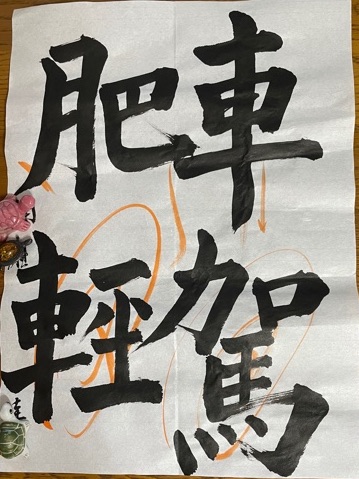 車駕
肥輕